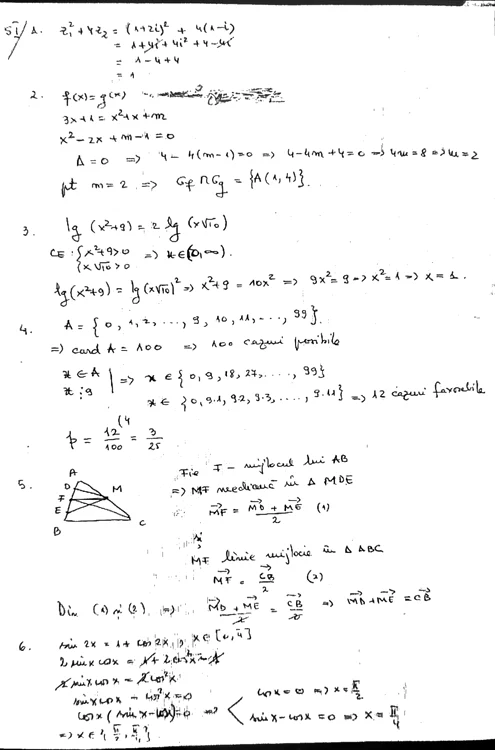 SI/ 1. z₁² + 4z₂ = (1+2i)² + 4(1-i)
= 1+4i+4i²+4-4i
= 1-4+4
= 1
2. f(x) = g(x)
3x+1 = x²+x+m
x²-2x+m-1=0
Δ=0 => 4-4(m-1)=0 => 4-4m+4=0 => 4m=8 => m=2
pt m=2 => Gf∩Gg = {A(1,4)}.
3. lg(x²+9) = 2 lg(x√10)
CE: { x²+9>0
x√10>0 => x∈(0,∞).
lg(x²+9) = lg(x√10)² => x²+9 = 10x² => 9x²=9 => x²=1 => x=1.
4. A = {0,1,2,...,9,10,11,...,99}.
=> card A = 100 => 100 cazuri posibile
x∈A
x⋮9 | => x∈{0,9,18,27,...,99}
x∈{0,9·1,9·2,9·3,...,9·11} => 12 cazuri favorabile
p = 12/100 (4 = 3/25
5. Fie F - mijlocul lui AB
=> MF mediană în Δ MDE
MF = (MD + ME)/2 (1)
A D F E B M C
MF linie mijlocie în Δ ABC
MF = CB/2 (2)
Din (1) și (2) => (MD + ME)/2 = CB/2 => MD+ME = CB
6. sin 2x = 1 + cos 2x, x∈[0,π]
2 sin x cos x = 1 + 2cos²x - 1
2 sin x cos x = 2cos²x
sin x cos x - cos²x = 0
cos x (sin x - cos x) = 0 => cos x = 0 => x = π/2
sin x - cos x = 0 => x = π/4
=> x∈{π/2, π/4}